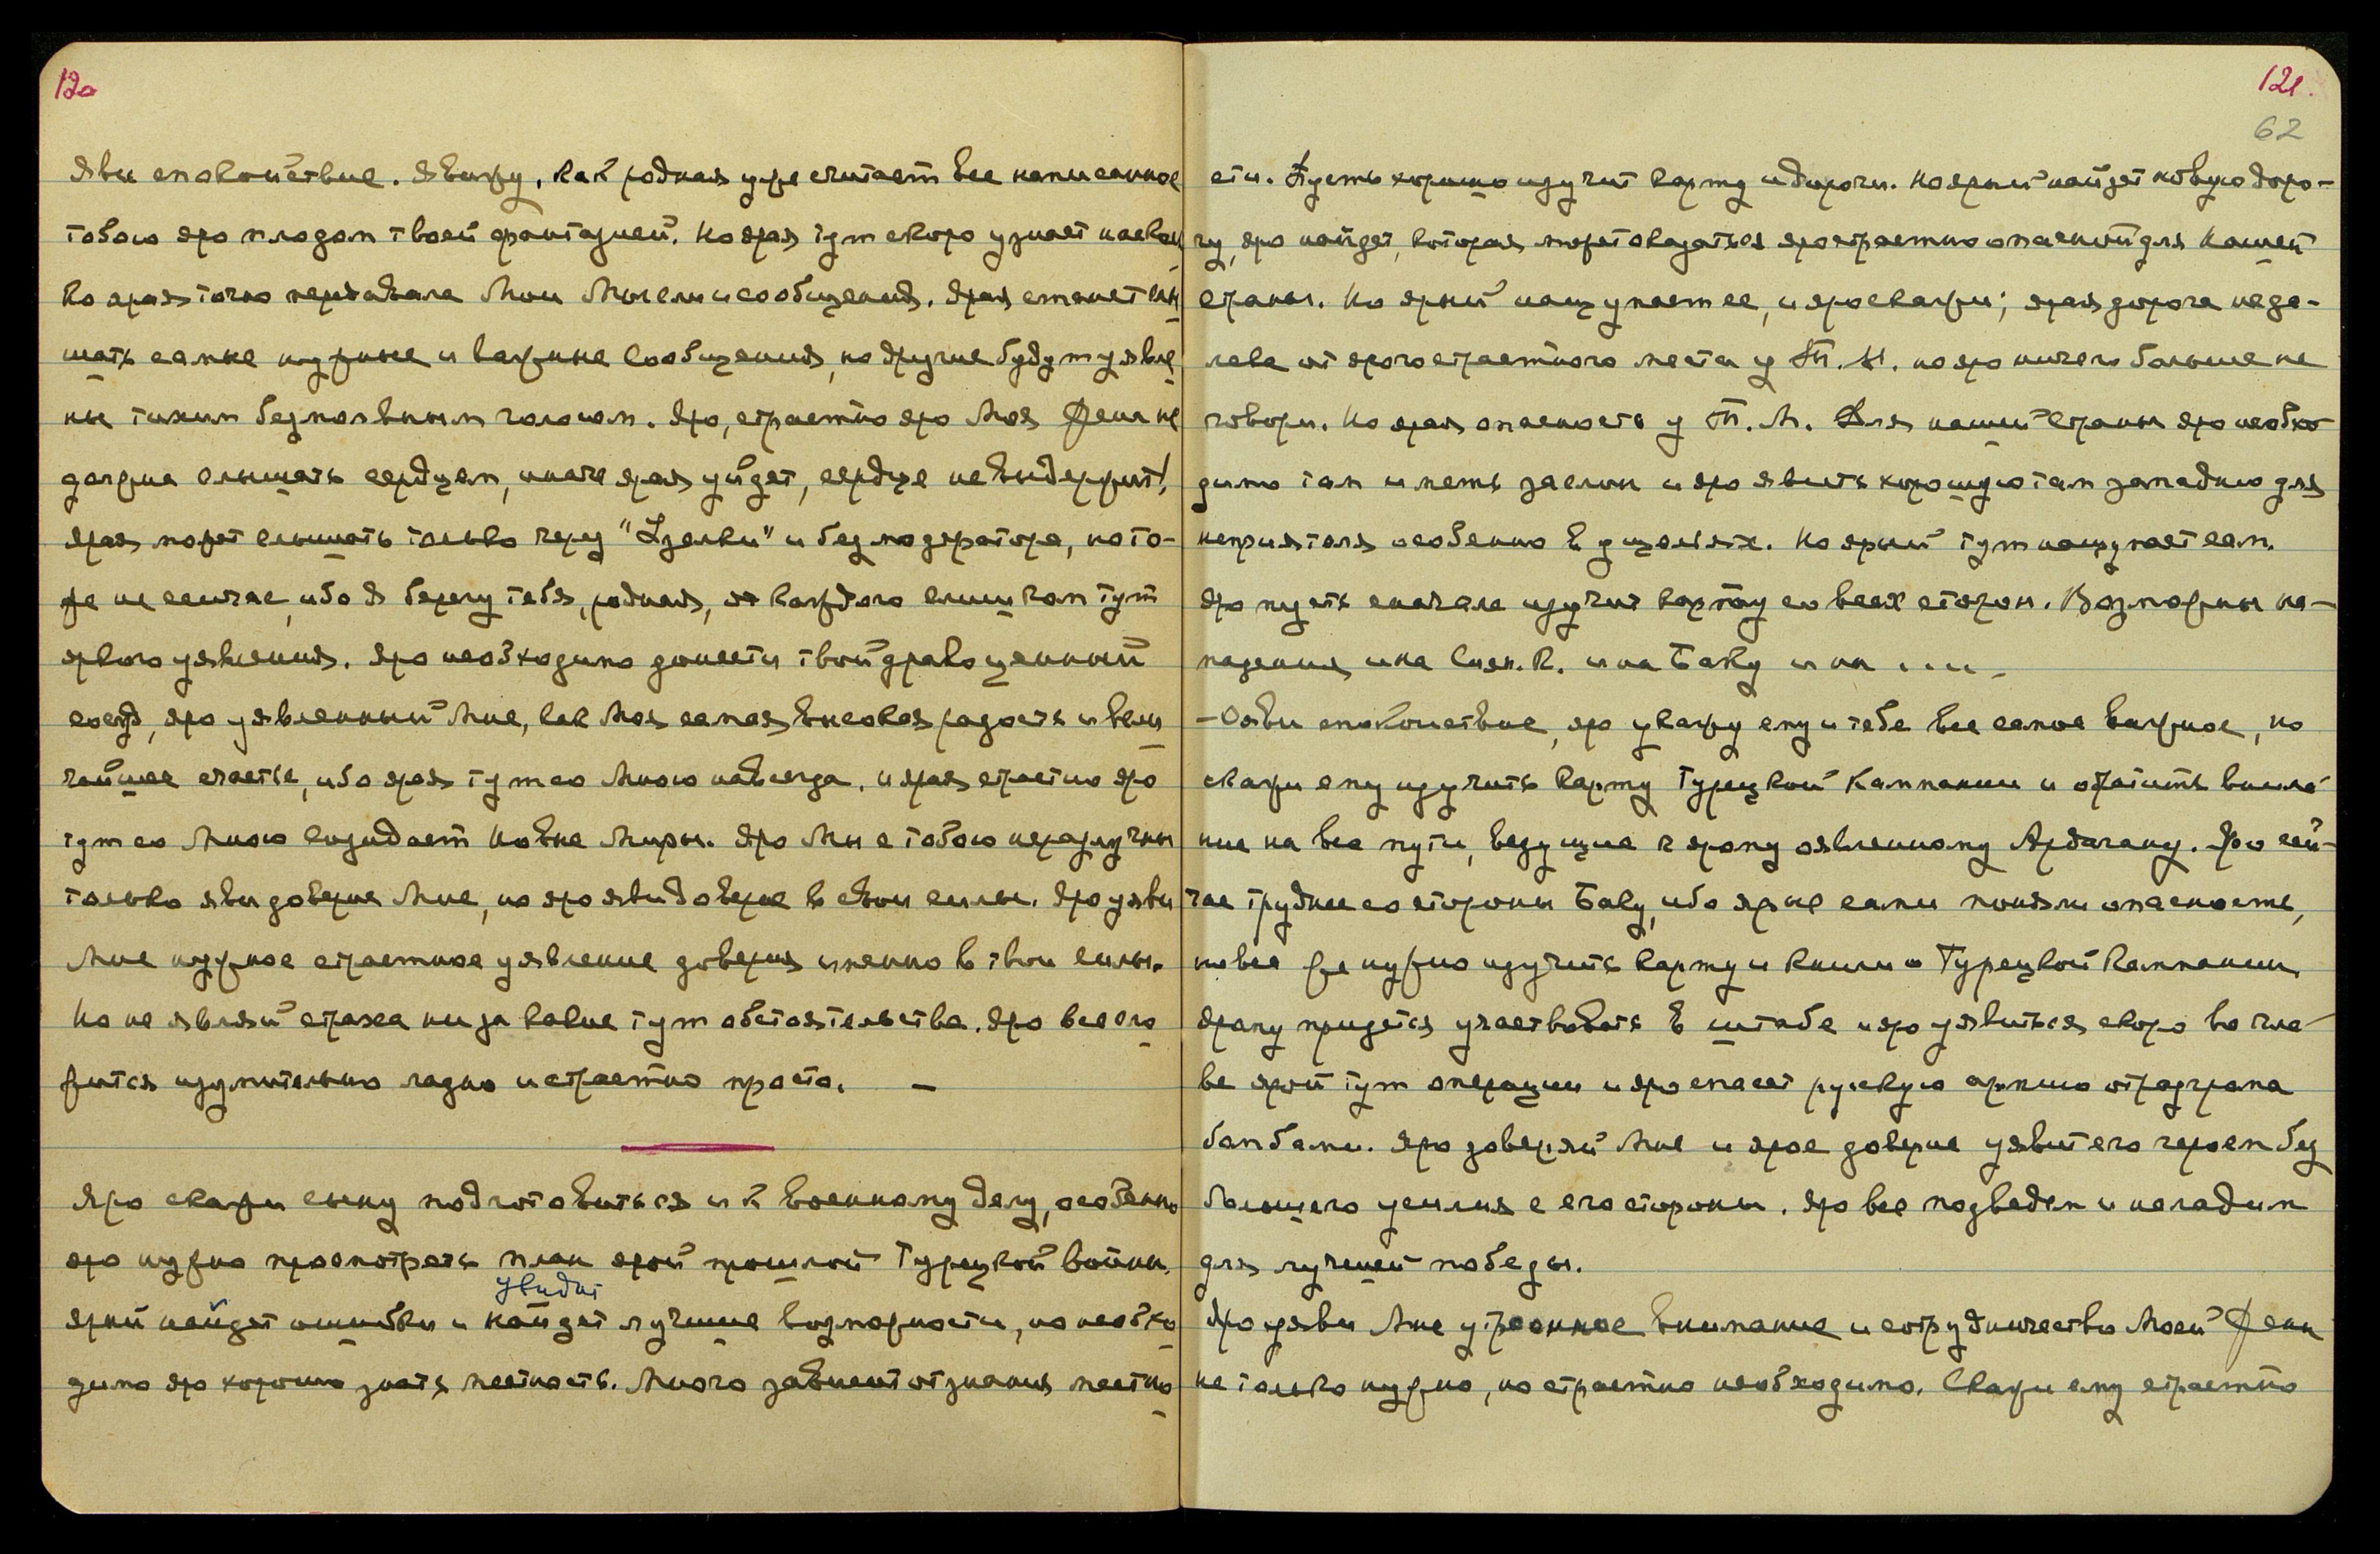 120
Яви спокойствие. Я вижу, как родная уже считает все написанное
тобою яро плодом твоей фантазией. Но ярая тут скоро узнает насколь
ко ярая точно передавала Мои Мысли и сообщения. Ярая станет слы
шать самые нужные и важные сообщения, но другие будут уявле
ны тихим безмолвным голосом. Яро, страстно яро Моя Фена не
должна слышать сердцем, иначе ярая уйдет, сердце не выдержит!
Ярая может слышать только через "Уздечки" и без модератора, но то-
же не сейчас, ибо Я берегу тебя, родная, от каждого слишком тут
яркого уявления. Яро необходимо донести твой драгоценный
сосуд, яро уявленный Мне, как Моя самая высокая радость и вели
чайшее счастье, ибо ярая тут со Мною навсегда, и ярая страстно яро
тут со Мною созидает Новые Миры. Яро Мы с тобою неразлучны
только яви доверие Мне, но яро яви доверие в свои силы. Яро уяви
Мне нужное страстное уявление доверия именно в твои силы.
Но не являй страха ни за какие тут обстоятельства. Яро все сло
жится изумительно ладно и страстно просто. —
Яро скажи сыну подготовиться и к военному делу, особенно
яро нужно просмотреть план ярой прошлой Турецкой войны.
увидит
Ярый найдет ошибки и найдет лучшие возможности, но необхо
димо яро хорошо знать местность. Много зависит от знания местно
121.
62
сти. Пусть хорошо изучит карту и дороги. Но ярый найдет новую доро-
гу, яро найдет, которая может оказаться яро страстно опасной для нашей
страны. Но ярый нащупает ее, и яро скажи; ярая дорога неда-
лека от ярого страстного места у Т. Н. но яро ничего больше не
говори. Но ярая опасность у Т. М. Для нашей страны яро необхо
димо там иметь заслон и яро явить хорошую там западню для
неприятеля особенно в ущельях. Но ярый тут нащупает сам.
Яро пусть сначала изучит карту со всех сторон. Возможны на-
падения и на Сиян. К. и на Баку и на ....
— Ояви спокойствие, яро укажу ему и тебе все самое важное, но
скажи ему изучить карту Турецкой Кампании и обратить внима-
ние на все пути, ведущие к ярому оявленному Ардагану. Яро сей-
час труднее со стороны Баку, ибо ярые сами поняли опасность,
но все же нужно изучить карту и книги о Турецкой Кампании.
Ярому придется участвовать в штабе и яро уявиться скоро во гла-
ве ярой тут операции и яро спасет русскую армию от разгрома
бомбами. Яро доверяй Мне и ярое доверие уявит его героем без
большего усилия с его стороны. Яро все подведем и наладим
для лучшей победы.
Яро уяви Мне утроенное внимание и сотрудничество Моей Фены
не только нужно, но страстно необходимо. Скажи ему страстно